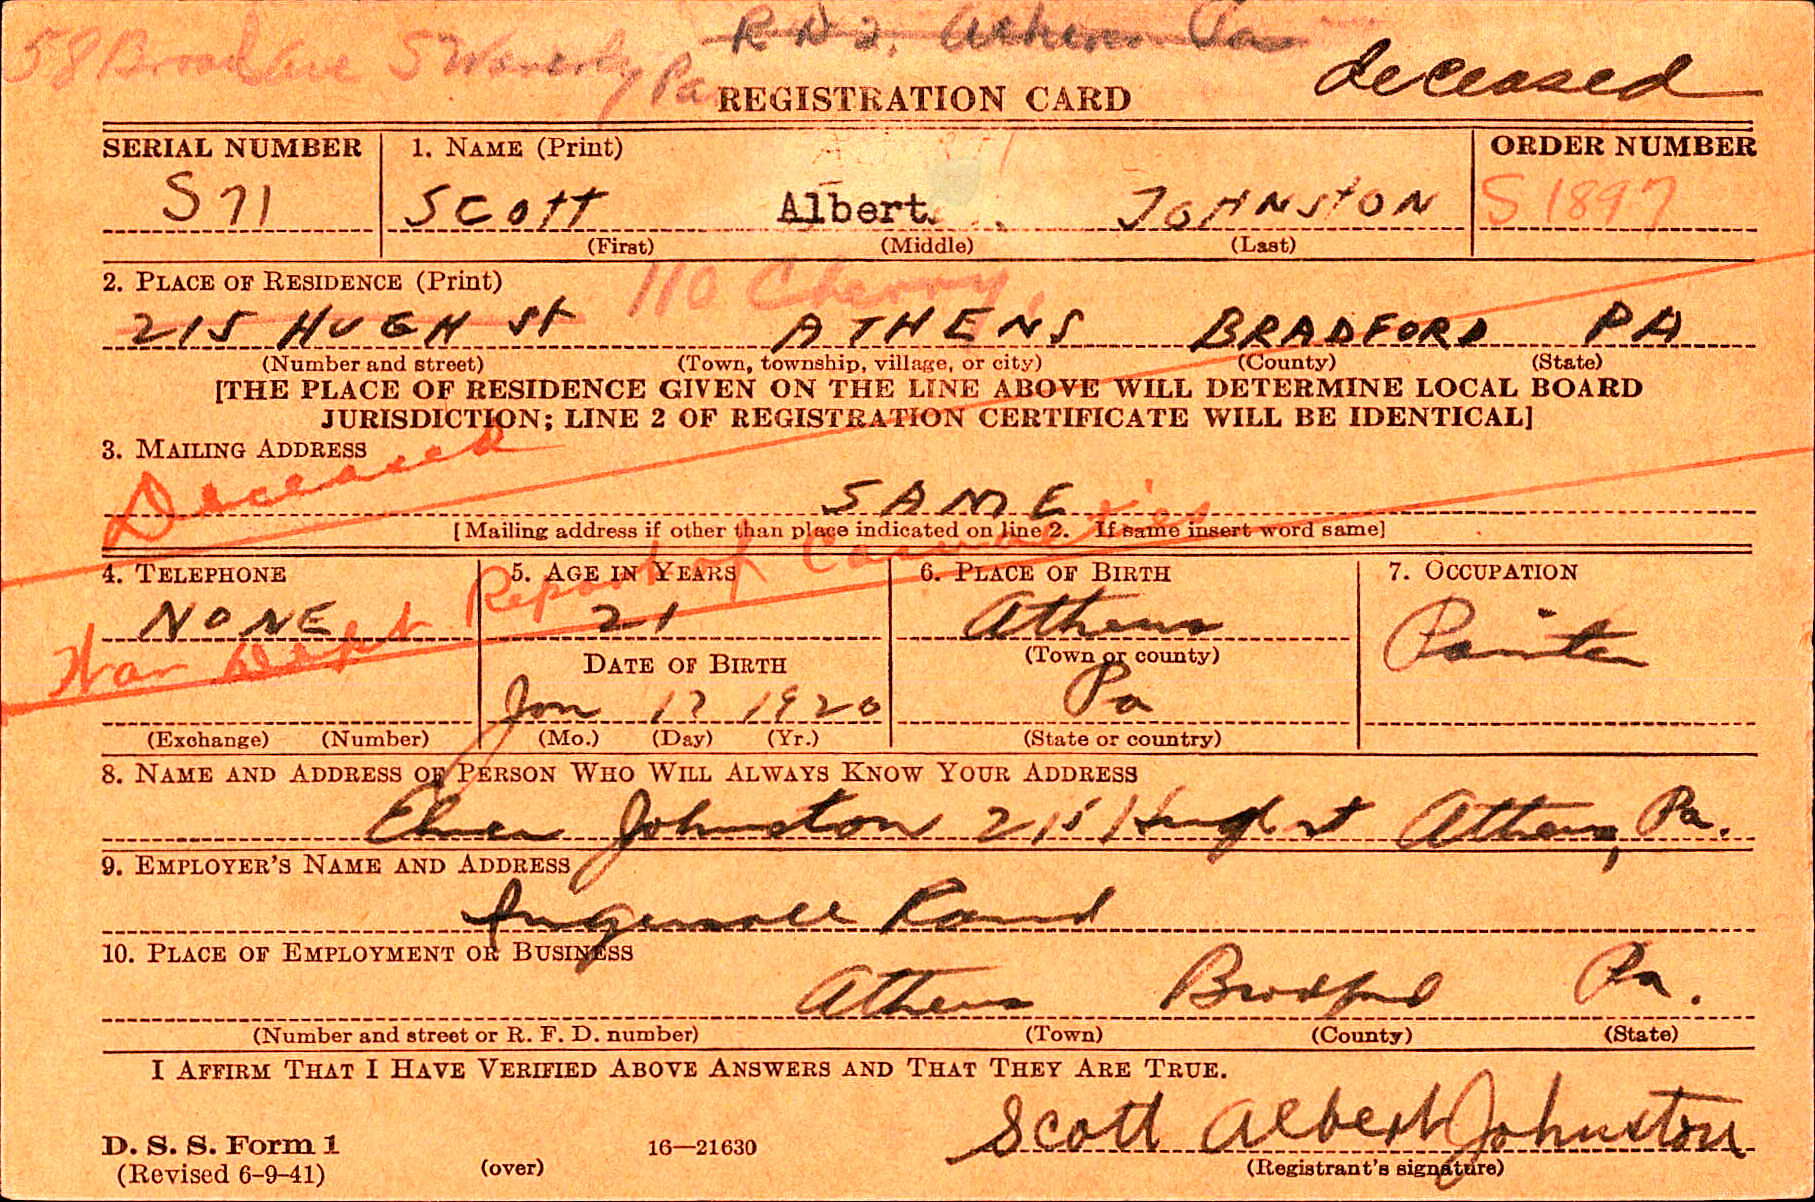 R D 2, Athens Pa
58 Broad Ave S Waverly Pa
deceased
REGISTRATION CARD
SERIAL NUMBER 1. NAME (Print) ORDER NUMBER
S 71 SCOTT Albert JOHNSTON S 1897
(First) (Middle) (Last)
2. PLACE OF RESIDENCE (Print) 110 Cherry,
215 HUGH St ATHENS BRADFORD PA
(Number and street) (Town, township, village, or city) (County) (State)
[THE PLACE OF RESIDENCE GIVEN ON THE LINE ABOVE WILL DETERMINE LOCAL BOARD
JURISDICTION; LINE 2 OF REGISTRATION CERTIFICATE WILL BE IDENTICAL]
3. MAILING ADDRESS
Deceased
SAME
[Mailing address if other than place indicated on line 2. If same insert word same]
War Dept Report of Casualties
4. TELEPHONE 5. AGE IN YEARS 6. PLACE OF BIRTH 7. OCCUPATION
NONE 21 Athens Painter
DATE OF BIRTH (Town or county)
Jan 17 1920 Pa
(Exchange) (Number) (Mo.) (Day) (Yr.) (State or country)
8. NAME AND ADDRESS OF PERSON WHO WILL ALWAYS KNOW YOUR ADDRESS
Elmer Johnston 215 Hugh st Athens, Pa.
9. EMPLOYER'S NAME AND ADDRESS
Ingersoll Rand
10. PLACE OF EMPLOYMENT OR BUSINESS
Athens Bradford Pa.
(Number and street or R. F. D. number) (Town) (County) (State)
I AFFIRM THAT I HAVE VERIFIED ABOVE ANSWERS AND THAT THEY ARE TRUE.
Scott Albert Johnston
D. S. S. Form 1 16—21630
(Revised 6-9-41) (over) (Registrant's signature)